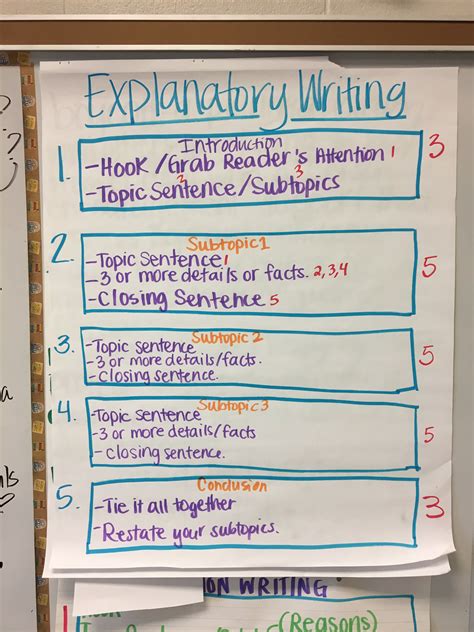 Explanatory Writing
1. Introduction 3
-Hook/Grab Reader's Attention 1
2 3
-Topic Sentence/Subtopics
2. Subtopic 1 5
-Topic Sentence 1
-3 or more details or facts. 2,3,4
-Closing Sentence 5
3. Subtopic 2 5
-Topic sentence
-3 or more details/facts.
-closing sentence.
4. Subtopic 3 5
-Topic sentence
-3 or more details/facts
-closing sentence.
5. Conclusion 3
-Tie it all together
-Restate your subtopics.
ON WRITING
(Reasons)